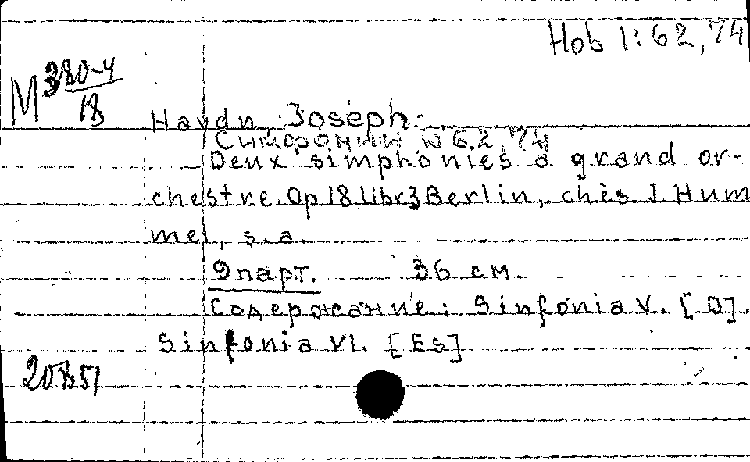 Hob 1:62,74
M 380-4
18
Haydn, Joseph.
Симфонии № 62, 74
Deux simphonies à grand or-
chestre. Op 18 libr 3 Berlin, chès J. Hum
mel, s.a.
9 парт. 36 см.
Содержание: Sinfonia V. [D].
Sinfonia VI. [Es]
20851